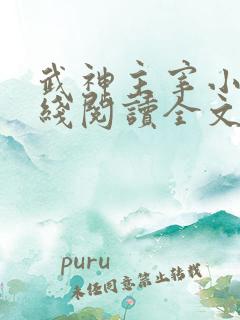 武神主宰小
綫閱讀全文
puru
未经同意禁止转载